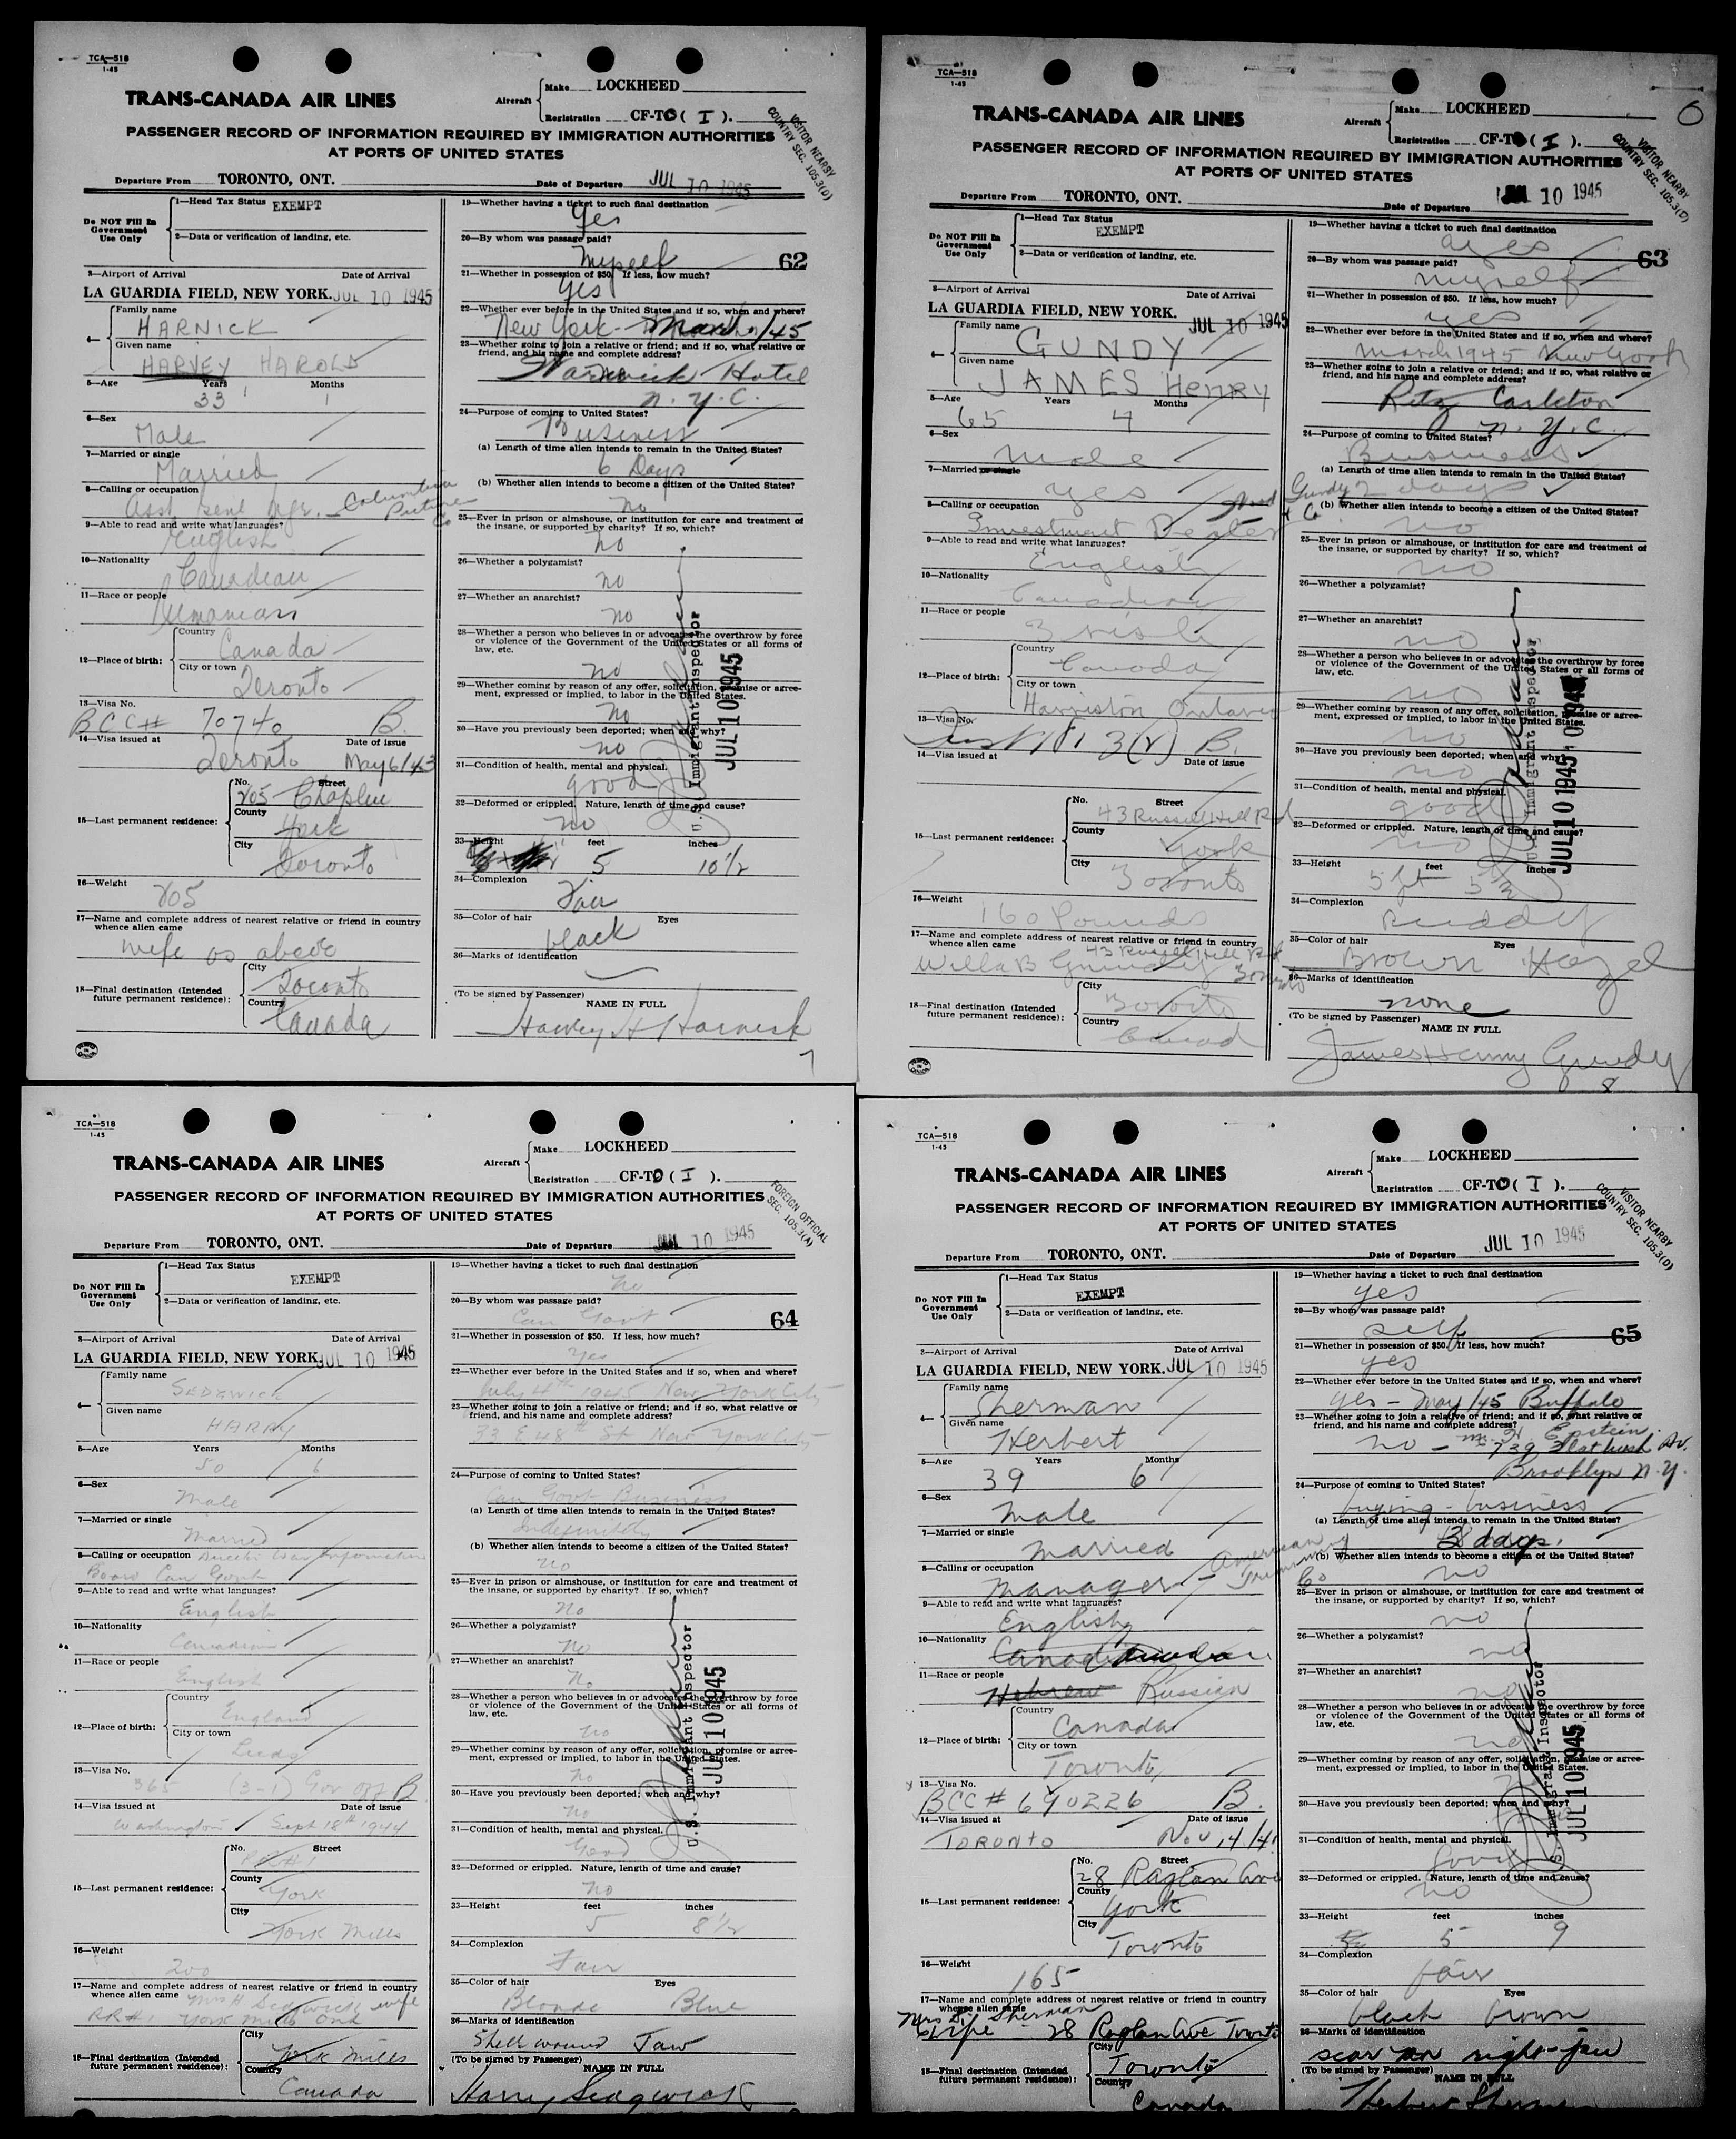 TCA—518
1-45
TRANS-CANADA AIR LINES
Aircraft
Make LOCKHEED
Registration CF-TC ( I ).
VISITOR NEARBY
COUNTRY SEC. 105.3(D)
PASSENGER RECORD OF INFORMATION REQUIRED BY IMMIGRATION AUTHORITIES
AT PORTS OF UNITED STATES
Departure From TORONTO, ONT.
Date of Departure JUL 10 1945
Do NOT Fill In
Government
Use Only
1—Head Tax Status EXEMPT
2—Data or verification of landing, etc.
3—Airport of Arrival Date of Arrival
LA GUARDIA FIELD, NEW YORK. JUL 10 1945
4—
Family name
HARNICK
Given name
HARVEY HAROLD
5—Age Years Months
33 1
6—Sex
Male
7—Married or single
Married
8—Calling or occupation
Asst Genl Mgr. — Columbia
Picture
Co
9—Able to read and write what languages?
English
10—Nationality
Canadian
11—Race or people
12—Place of birth:
Country
Canada
City or town
Toronto
13—Visa No.
BCC# 70740 B.
14—Visa issued at Date of issue
Toronto May 6/43
15—Last permanent residence:
No. Street
205 Chaplin
County
York
City
Toronto
16—Weight
205
17—Name and complete address of nearest relative or friend in country
whence alien came
wife as above
18—Final destination (Intended
future permanent residence):
City
Toronto
Country
Canada
19—Whether having a ticket to such final destination
Yes
20—By whom was passage paid?
Myself
62
21—Whether in possession of $50. If less, how much?
Yes
22—Whether ever before in the United States and if so, when and where?
New York - March /45
23—Whether going to join a relative or friend; and if so, what relative or
friend, and his name and complete address?
Warwick Hotel
N.Y.C.
24—Purpose of coming to United States?
Business
(a) Length of time alien intends to remain in the United States?
6 Days
(b) Whether alien intends to become a citizen of the United States?
No
25—Ever in prison or almshouse, or institution for care and treatment of
the insane, or supported by charity? If so, which?
no
26—Whether a polygamist?
no
27—Whether an anarchist?
no
28—Whether a person who believes in or advocates the overthrow by force
or violence of the Government of the United States or all forms of
law, etc.
no
29—Whether coming by reason of any offer, solicitation, promise or agree-
ment, expressed or implied, to labor in the United States.
no
30—Have you previously been deported; when and why?
no
31—Condition of health, mental and physical.
good
32—Deformed or crippled. Nature, length of time and cause?
no
33—Height feet inches
5 10 1/2
34—Complexion
Fair
35—Color of hair Eyes
black
36—Marks of identification
(To be signed by Passenger)
NAME IN FULL
Harvey H Harnick
7
U.S. Immigrant Inspector
JUL 10 1945
TCA—518
1-45
TRANS-CANADA AIR LINES
Aircraft
Make LOCKHEED
Registration CF-T ( I ).
VISITOR NEARBY
COUNTRY SEC. 105.3(D)
PASSENGER RECORD OF INFORMATION REQUIRED BY IMMIGRATION AUTHORITIES
AT PORTS OF UNITED STATES
Departure From TORONTO, ONT.
Date of Departure JUL 10 1945
Do NOT Fill In
Government
Use Only
1—Head Tax Status
EXEMPT
2—Data or verification of landing, etc.
3—Airport of Arrival Date of Arrival
LA GUARDIA FIELD, NEW YORK. JUL 10 1945
4—
Family name
GUNDY
Given name
JAMES Henry
5—Age Years Months
65 4
6—Sex
male
7—Married or single
yes
8—Calling or occupation
Wood Gundy & Co
Investment Dealer
9—Able to read and write what languages?
English
10—Nationality
Canadian
11—Race or people
Irish
12—Place of birth:
Country
Canada
City or town
Harriston Ontario
13—Visa No.
3(2) B.
14—Visa issued at Date of issue
15—Last permanent residence:
No. Street
43 Russell Hill Rd
County
York
City
Toronto
16—Weight
160 Pounds
17—Name and complete address of nearest relative or friend in country
whence alien came 43 Russell Hill Rd
Willa B Gundy Toronto
18—Final destination (Intended
future permanent residence):
City
Toronto
Country
Canada
19—Whether having a ticket to such final destination
yes
20—By whom was passage paid?
myself
63
21—Whether in possession of $50. If less, how much?
yes
22—Whether ever before in the United States and if so, when and where?
March 1945 New York
23—Whether going to join a relative or friend; and if so, what relative or
friend, and his name and complete address?
Ritz Carleton
N.Y.C.
24—Purpose of coming to United States?
Business
(a) Length of time alien intends to remain in the United States?
2 days
(b) Whether alien intends to become a citizen of the United States?
no
25—Ever in prison or almshouse, or institution for care and treatment of
the insane, or supported by charity? If so, which?
no
26—Whether a polygamist?
27—Whether an anarchist?
no
28—Whether a person who believes in or advocates the overthrow by force
or violence of the Government of the United States or all forms of
law, etc.
no
29—Whether coming by reason of any offer, solicitation, promise or agree-
ment, expressed or implied, to labor in the United States.
no
30—Have you previously been deported; when and why?
no
31—Condition of health, mental and physical.
good
32—Deformed or crippled. Nature, length of time and cause?
no
33—Height feet inches
5 ft 5 1/2
34—Complexion
ruddy
35—Color of hair Eyes
Brown Hazel
36—Marks of identification
none
(To be signed by Passenger)
NAME IN FULL
James Henry Gundy
8
U.S. Immigrant Inspector
JUL 10 1945
TCA—518
1-45
TRANS-CANADA AIR LINES
Aircraft
Make LOCKHEED
Registration CF-TC ( I ).
FOREIGN OFFICIAL
SEC. 105.3(A)
PASSENGER RECORD OF INFORMATION REQUIRED BY IMMIGRATION AUTHORITIES
AT PORTS OF UNITED STATES
Departure From TORONTO, ONT.
Date of Departure JUL 10 1945
Do NOT Fill In
Government
Use Only
1—Head Tax Status
EXEMPT
2—Data or verification of landing, etc.
3—Airport of Arrival Date of Arrival
LA GUARDIA FIELD, NEW YORK. JUL 10 1945
4—
Family name
SEDGWICK
Given name
HARRY
5—Age Years Months
50 6
6—Sex
Male
7—Married or single
Married
8—Calling or occupation Director War Information
Board Can Govt
9—Able to read and write what languages?
English
10—Nationality
Canadian
11—Race or people
English
12—Place of birth:
Country
England
City or town
Leeds
13—Visa No.
365 (3-1) Gov Off B
14—Visa issued at Date of issue
Washington Sept 18th 1944
15—Last permanent residence:
No. Street
RR#1
County
York
City
York Mills
16—Weight
200
17—Name and complete address of nearest relative or friend in country
whence alien came Mrs H Sedgwick wife
RR#1 York Mills Ont
18—Final destination (Intended
future permanent residence):
City
York Mills
Country
Canada
19—Whether having a ticket to such final destination
No
20—By whom was passage paid?
Can Govt
64
21—Whether in possession of $50. If less, how much?
Yes
22—Whether ever before in the United States and if so, when and where?
July 4th 1945 New York City
23—Whether going to join a relative or friend; and if so, what relative or
friend, and his name and complete address?
33 E 48th St New York City
24—Purpose of coming to United States?
Can Govt Business
(a) Length of time alien intends to remain in the United States?
Indefinitely
(b) Whether alien intends to become a citizen of the United States?
No
25—Ever in prison or almshouse, or institution for care and treatment of
the insane, or supported by charity? If so, which?
No
26—Whether a polygamist?
No
27—Whether an anarchist?
No
28—Whether a person who believes in or advocates the overthrow by force
or violence of the Government of the United States or all forms of
law, etc.
No
29—Whether coming by reason of any offer, solicitation, promise or agree-
ment, expressed or implied, to labor in the United States.
No
30—Have you previously been deported; when and why?
No
31—Condition of health, mental and physical.
Good
32—Deformed or crippled. Nature, length of time and cause?
No
33—Height feet inches
5 8 1/2
34—Complexion
Fair
35—Color of hair Eyes
Blonde Blue
36—Marks of identification
Shell wound Jaw
(To be signed by Passenger)
NAME IN FULL
Harry Sedgwick
U.S. Immigrant Inspector
JUL 10 1945
TCA—518
1-45
TRANS-CANADA AIR LINES
Aircraft
Make LOCKHEED
Registration CF-TC ( I ).
VISITOR NEARBY
COUNTRY SEC. 105.3(D)
PASSENGER RECORD OF INFORMATION REQUIRED BY IMMIGRATION AUTHORITIES
AT PORTS OF UNITED STATES
Departure From TORONTO, ONT.
Date of Departure JUL 10 1945
Do NOT Fill In
Government
Use Only
1—Head Tax Status
EXEMPT
2—Data or verification of landing, etc.
3—Airport of Arrival Date of Arrival
LA GUARDIA FIELD, NEW YORK. JUL 10 1945
4—
Family name
Sherman
Given name
Herbert
5—Age Years Months
39 6
6—Sex
male
7—Married or single
married
8—Calling or occupation
manager - American Trimming Co
9—Able to read and write what languages?
English
10—Nationality
Canadian
11—Race or people
Hebrew Russian
12—Place of birth:
Country
Canada
City or town
Toronto
13—Visa No.
BCC# 690226 B.
14—Visa issued at Date of issue
TORONTO Nov 14/41
15—Last permanent residence:
No. Street
28 Raglan Ave
County
York
City
Toronto
16—Weight
165
17—Name and complete address of nearest relative or friend in country
whence alien came
Mrs S. Sherman
Wife 28 Raglan Ave Toronto
18—Final destination (Intended
future permanent residence):
City
Toronto
Country
Canada
19—Whether having a ticket to such final destination
yes
20—By whom was passage paid?
self
65
21—Whether in possession of $50. If less, how much?
yes
22—Whether ever before in the United States and if so, when and where?
yes - May /45 Buffalo
23—Whether going to join a relative or friend; and if so, what relative or
friend, and his name and complete address?
M. H. Epstein
no - 739 Flatbush Av.
Brooklyn N.Y.
24—Purpose of coming to United States?
buying - business
(a) Length of time alien intends to remain in the United States?
3 days.
(b) Whether alien intends to become a citizen of the United States?
no
25—Ever in prison or almshouse, or institution for care and treatment of
the insane, or supported by charity? If so, which?
no
26—Whether a polygamist?
no
27—Whether an anarchist?
no
28—Whether a person who believes in or advocates the overthrow by force
or violence of the Government of the United States or all forms of
law, etc.
no
29—Whether coming by reason of any offer, solicitation, promise or agree-
ment, expressed or implied, to labor in the United States.
30—Have you previously been deported; when and why?
31—Condition of health, mental and physical.
Good
32—Deformed or crippled. Nature, length of time and cause?
no
33—Height feet inches
5 9
34—Complexion
fair
35—Color of hair Eyes
black brown
36—Marks of identification
scar on right
(To be signed by Passenger)
NAME IN FULL
Herbert Sherman
U.S. Immigrant Inspector
JUL 10 1945